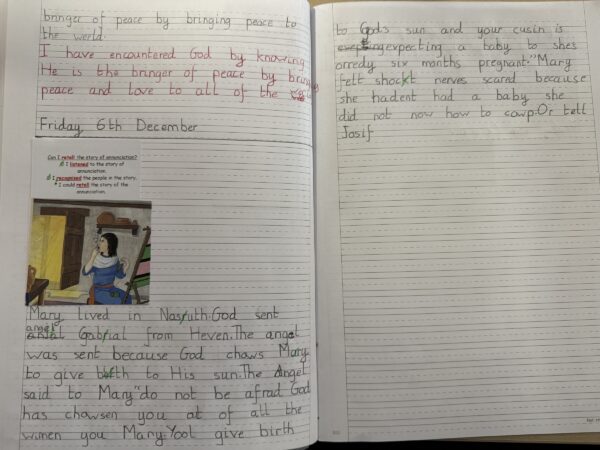 bringer of peace by bringing peace to
the world.
I have encountered God by knowing
He is the bringer of peace by bringing
peace and love to all of the
Friday, 6th December
Can I retell the story of annunciation?
I listened to the story of
annunciation.
I recognised the people in the story.
I could retell the story of the
annunciation.
Mary lived in Nasruth.God sent
angel Gabrial from Heven.The angel
was sent because God chaws Mary
to give birth to His sun.The Angel
said to Mary"do not be afrad God
has chowsen you at of all the
wimen you Mary.Yool give birth
to Gods sun and your cusin is
expecting a baby to shes
orredy six months pregnant."Mary
felt shockt nerves scard because
she hadent had a baby she
did not now how to cowp.Or tell
Josif